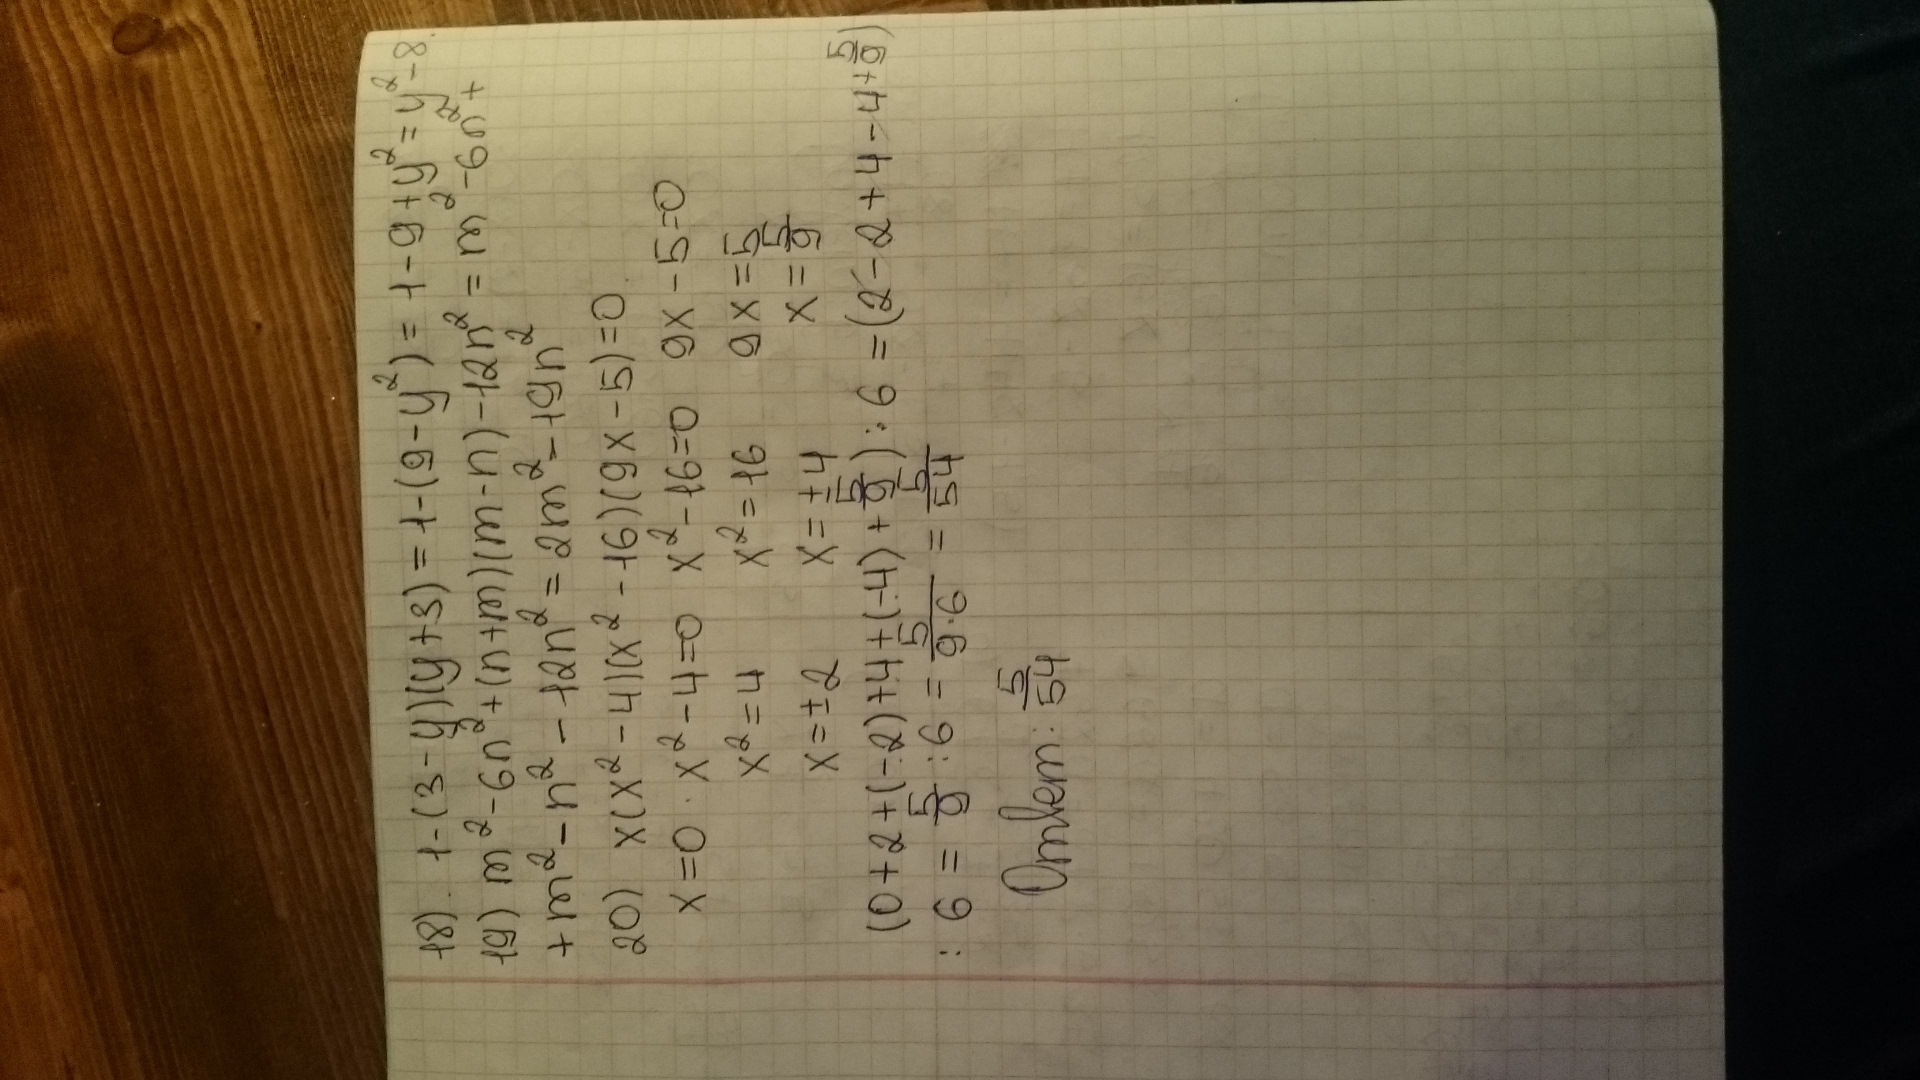 18). 1-(3-y)(y+3)=1-(9-y²)=1-9+y²=y²-8.
19) m²-6n²+(n+m)(m-n)-12n²=m²-6n²+
+m²-n²-12n²=2m²-19n²
20) x(x²-4)(x²-16)(9x-5)=0.
x=0. x²-4=0 x²-16=0 9x-5=0
x²=4 x²=16 9x=5
x=±2 x=±4 x=5/9
(0+2+(-2)+4+(-4)+5/9):6=(2-2+4-4+5/9)
:6=5/9:6=5/9·6=5/54
Ответ: 5/54